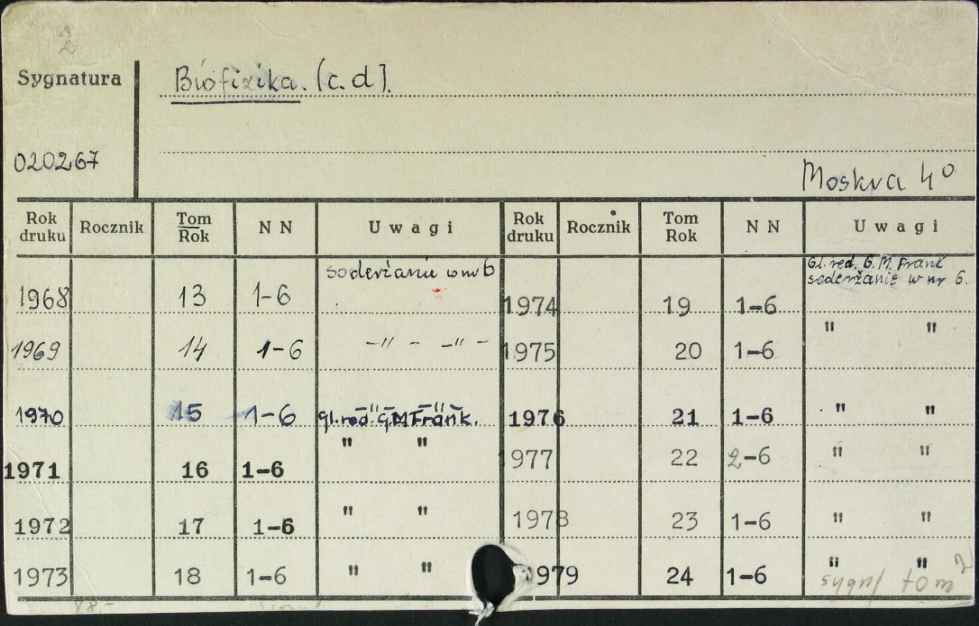 2
Sygnatura Biofizika. (c.d).
020267
Moskva 4°
Rok druku Rocznik Tom Rok N N Uwagi Rok druku Rocznik Tom Rok N N Uwagi
1968 13 1-6 soderżanie w nr 6 1974 19 1-6 Gl. red. G. M. Frank soderżanie w nr 6.
1969 14 1-6 -"- -"- 1975 20 1-6 " "
1970 15 1-6 -"- -"- gl. red. G.M Frank. 1976 21 1-6 " "
1971 16 1-6 " " 1977 22 2-6 " "
1972 17 1-6 " " 1978 23 1-6 " "
1973 18 1-6 " " 1979 24 1-6 " "
sygn/ tom 2
88-